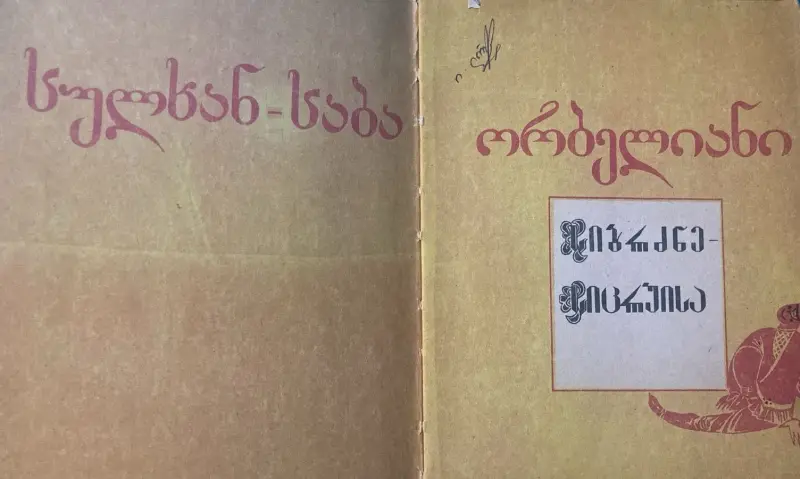 სულხან-საბა
ორბელიანი
სიბრძნე-
სიცრუისა